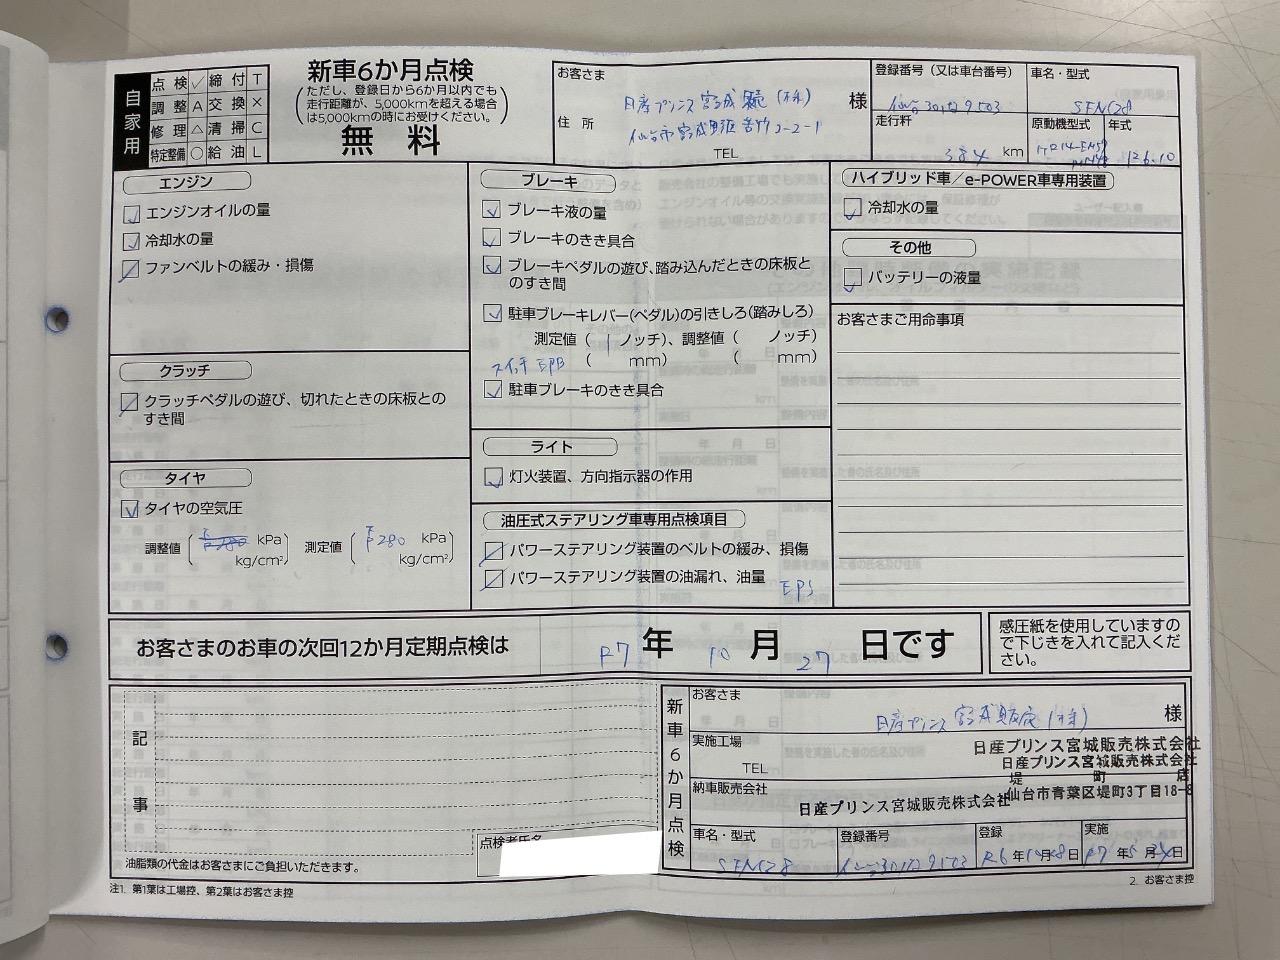 自家用
点検 ✓ 締付 T
調整 A 交換 ×
修理 △ 清掃 C
特定整備 ○ 給油 L
新車6か月点検
(ただし、登録日から6か月以内でも
走行距離が、5,000kmを超える場合
は5,000kmの時にお受けください。)
無料
お客さま
日産プリンス宮城販売(株) 様
住所
仙台市宮城野区 2-2-1
TEL
登録番号(又は車台番号)
走行粁
384 km
車名・型式
SFNC28
原動機型式
年式
R6.10
エンジン
エンジンオイルの量
冷却水の量
ファンベルトの緩み・損傷
クラッチ
クラッチペダルの遊び、切れたときの床板との
すき間
タイヤ
タイヤの空気圧
調整値( kPa
kg/cm²)
測定値( 280 kPa
kg/cm²)
ブレーキ
ブレーキ液の量
ブレーキのきき具合
ブレーキペダルの遊び、踏み込んだときの床板と
のすき間
駐車ブレーキレバー(ペダル)の引きしろ(踏みしろ)
測定値( 1 ノッチ)、調整値( ノッチ)
スイッチ EPB ( mm) ( mm)
駐車ブレーキのきき具合
ライト
灯火装置、方向指示器の作用
油圧式ステアリング車専用点検項目
パワーステアリング装置のベルトの緩み、損傷
パワーステアリング装置の油漏れ、油量
EPS
ハイブリッド車/e-POWER車専用装置
冷却水の量
その他
バッテリーの液量
お客さまご用命事項
お客さまのお車の次回12か月定期点検は R7 年 10 月 27 日です
感圧紙を使用していますの
で下じきを入れて記入くだ
さい。
記事
油脂類の代金はお客さまにご負担いただきます。
点検者氏名
新車6か月点検
お客さま
日産プリンス宮城販売(株) 様
実施工場
TEL
日産プリンス宮城販売株式会社
日産プリンス宮城販売株式会社
堤町店
仙台市青葉区堤町3丁目18-8
納車販売会社
日産プリンス宮城販売株式会社
車名・型式
SFNC28
登録番号
登録
R6 年 10 月 28 日
実施
R7 年 5 月 日
注1. 第1葉は工場控、第2葉はお客さま控
2. お客さま控